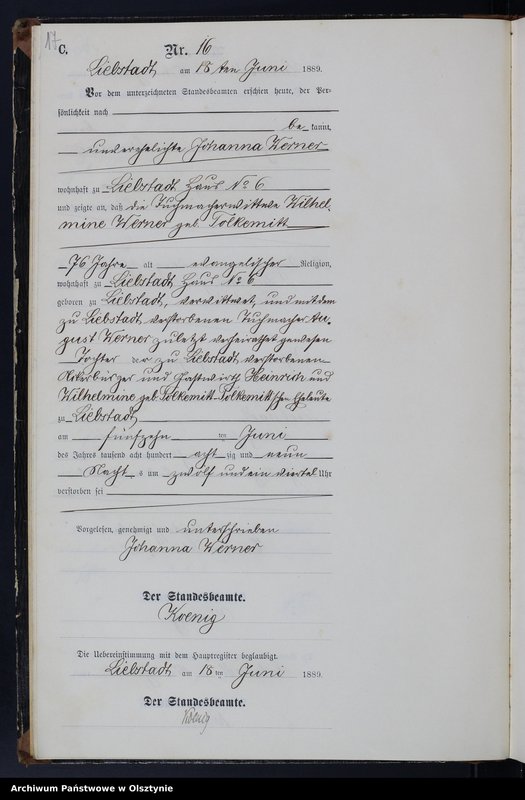 17
C.
Nr. 16
Liebstadt am 15 ten Juni 1889.
Vor dem unterzeichneten Standesbeamten erschien heute, der Per-
sönlichkeit nach
be- kannt,
unverehelichte Johanna Werner
wohnhaft zu Liebstadt Haus No 6
und zeigte an, daß die Tuchmacherwittwe Wilhel-
mine Werner geb. Tolkemitt
76 Jahre alt evangelischer Religion,
wohnhaft zu Liebstadt Haus No 6
geboren zu Liebstadt, verwittwet, und mit dem
zu Liebstadt verstorbenen Tuchmacher Au-
gust Werner zuletzt verheirathet gewesen
Tochter der zu Liebstadt verstorbenen
Ackerbürger und Gastwirth Heinrich und
Wilhelmine geb. Tolkemitt-Tolkemitt'schen Eheleute
zu Liebstadt
am fünfzehn ten Juni
des Jahres tausend acht hundert acht zig und neun
Nacht s um zwölf und ein viertel Uhr
verstorben sei
Vorgelesen, genehmigt und unterschrieben
Johanna Werner
Der Standesbeamte.
Koenig
Die Uebereinstimmung mit dem Hauptregister beglaubigt.
Liebstadt am 15 ten Juni 1889.
Der Standesbeamte.
Koenig
Archiwum Państwowe w Olsztynie